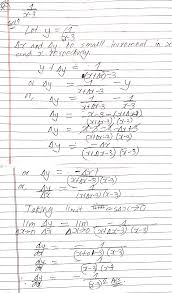 1/(x-3)
Soln
Let y = 1/(x-3)
Δx and Δy be small increment in x
and y respectively.
y + Δy = 1/(x+Δx-3)
or, Δy = 1/(x+Δx-3) - y
or, Δy = 1/(x+Δx-3) - 1/(x-3)
Δy = (x-3-(x+Δx-3))/((x+Δx-3)(x-3))
Δy = (x-3-x-Δx+3)/((x+Δx-3)(x-3))
Δy = -Δx/((x+Δx-3)(x-3))
or Δy = -Δx/((x+Δx-3)(x-3))
or Δy/Δx = -1/((x+Δx-3)(x-3))
Taking limit
lim Δx→0 Δy/Δx = lim Δx→0 -1/((x+Δx-3)(x-3))
dy/dx = -1/((x+0-3)(x-3))
dy/dx = -1/((x-3)(x-3))
∴ dy/dx = -1/(x-3)² Ans